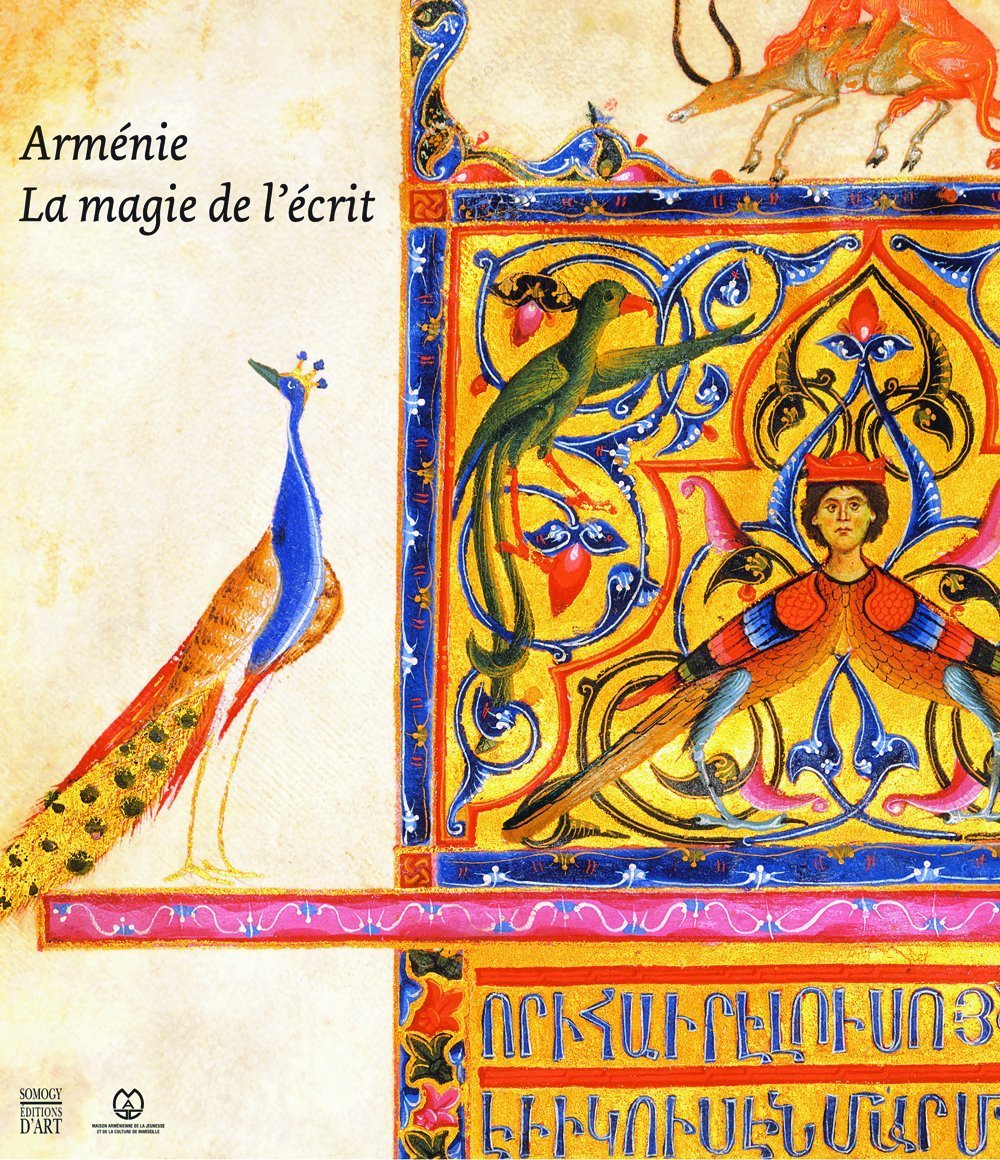 Arménie
La magie de l’écrit
ՈՐԻՀԱՒՐԷԼՈՒՍՈՅ
ԷՒԻԿՈՒՍԷՆՄԱՐՄ
SOMOGY
ÉDITIONS
D’ART
MAISON ARMÉNIENNE DE LA JEUNESSE
ET DE LA CULTURE DE MARSEILLE